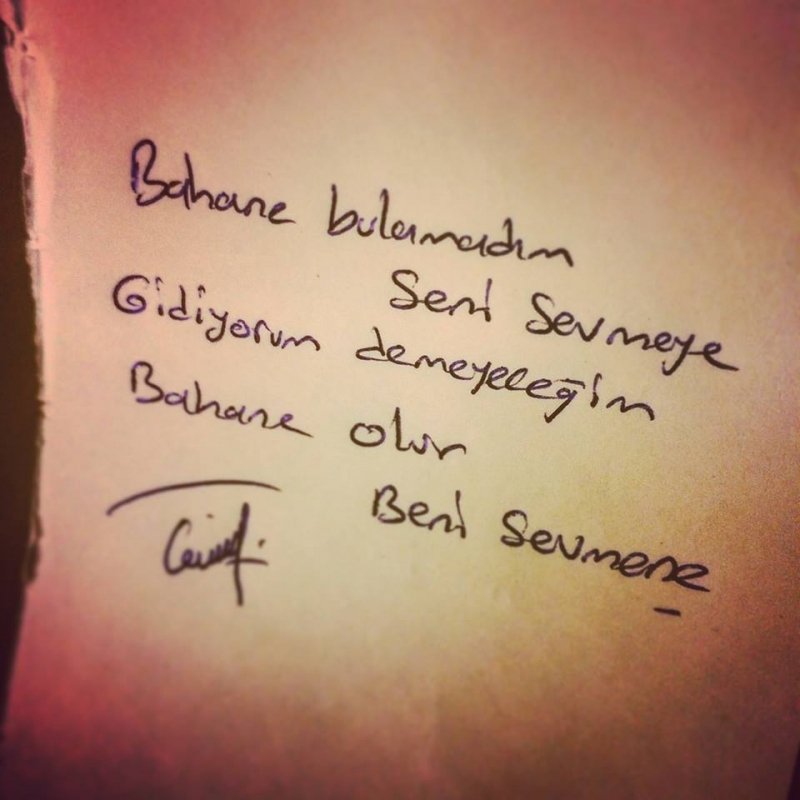 Bahane bulamadım
Seni Sevmeye
Gidiyorum demeyeceğim
Bahane olur
Beni Sevmene